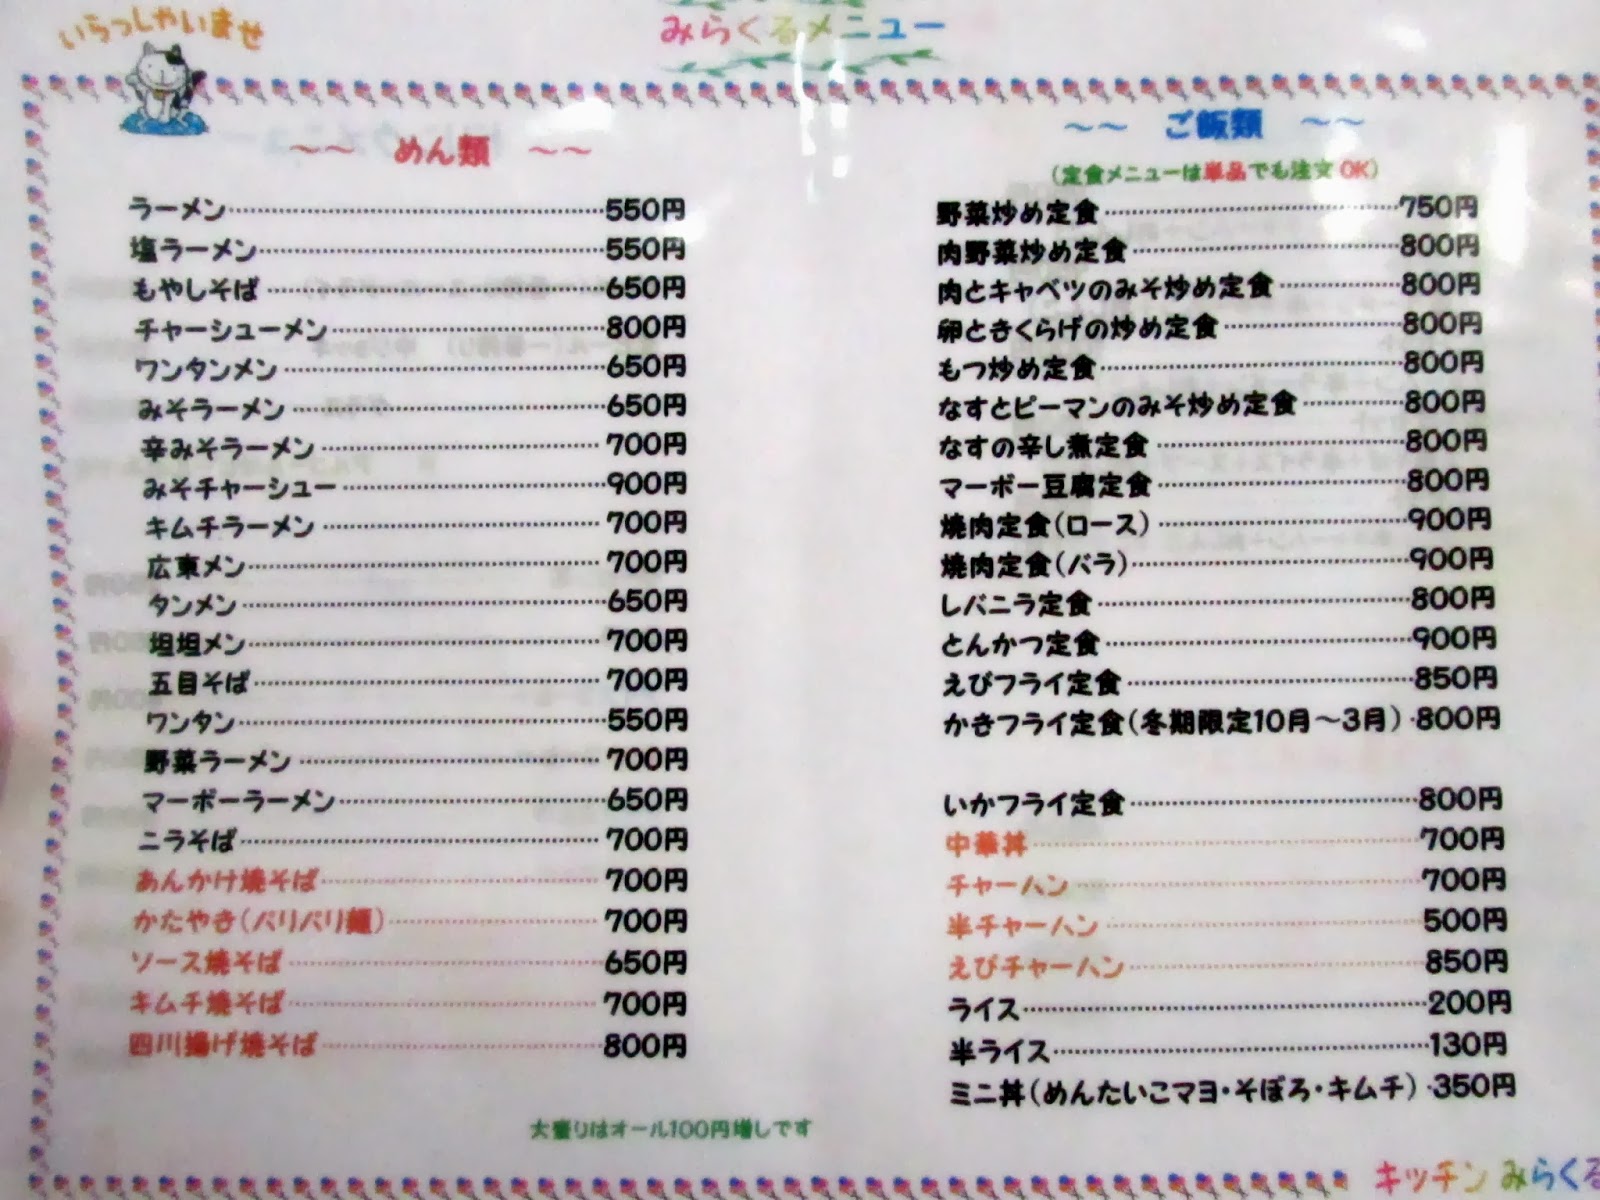 いらっしゃいませ
みらくるメニュー
～～ めん類 ～～
ラーメン…550円
塩ラーメン…550円
もやしそば…650円
チャーシューメン…800円
ワンタンメン…650円
みそラーメン…650円
辛みそラーメン…700円
みそチャーシュー…900円
キムチラーメン…700円
広東メン…700円
タンメン…650円
坦坦メン…700円
五目そば…700円
ワンタン…550円
野菜ラーメン…700円
マーボーラーメン…650円
ニラそば…700円
あんかけ焼そば…700円
かたやき(パリパリ麺)…700円
ソース焼そば…650円
キムチ焼そば…700円
四川揚げ焼そば…800円
大盛りはオール100円増しです
～～ ご飯類 ～～
(定食メニューは単品でも注文OK)
野菜炒め定食…750円
肉野菜炒め定食…800円
肉とキャベツのみそ炒め定食…800円
卵ときくらげの炒め定食…800円
もつ炒め定食…800円
なすとピーマンのみそ炒め定食…800円
なすの辛し煮定食…800円
マーボー豆腐定食…800円
焼肉定食(ロース)…900円
焼肉定食(バラ)…900円
レバニラ定食…800円
とんかつ定食…900円
えびフライ定食…850円
かきフライ定食(冬期限定10月～3月)·800円
いかフライ定食…800円
中華丼…700円
チャーハン…700円
半チャーハン…500円
えびチャーハン…850円
ライス…200円
半ライス…130円
ミニ丼(めんたいこマヨ・そぼろ・キムチ)·350円
キッチン みらくる